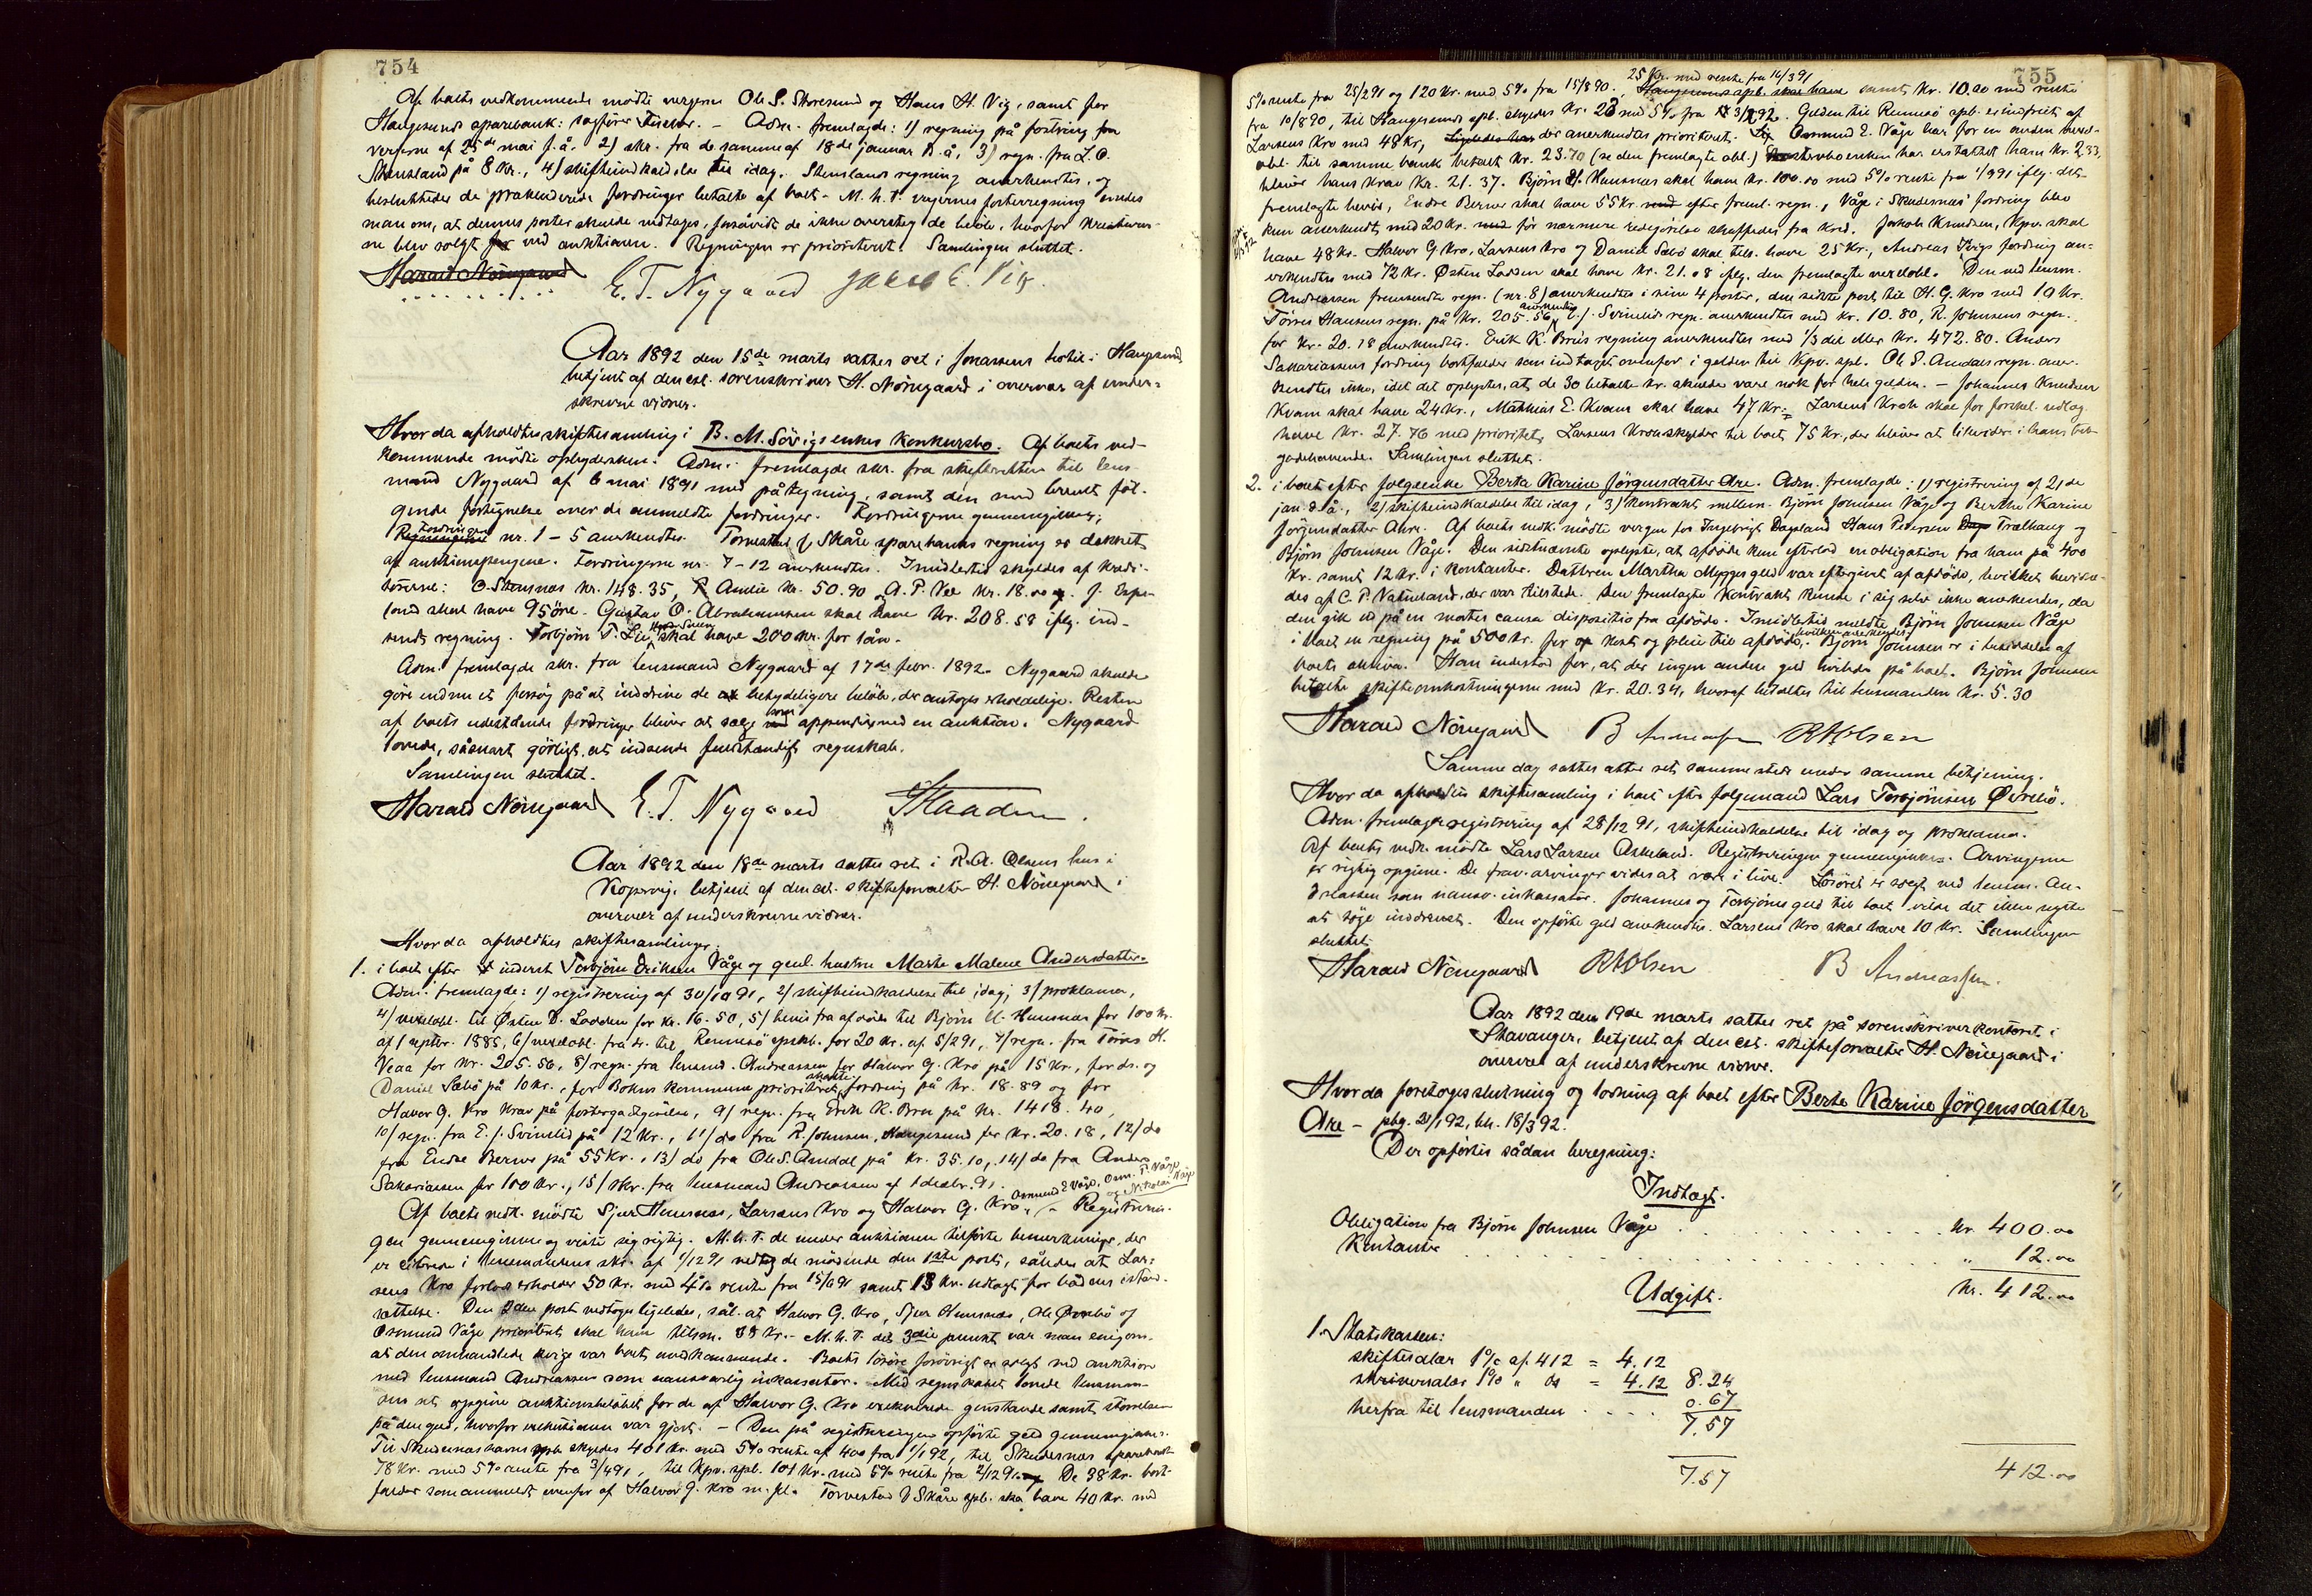 754
Af boets vedkommende mødte vergerne Ole S. Storesund og Hans H. Vig, samt for
Haugesunds sparebank: sagfører Fischer. – Adm. fremlagde: 1) regning på fostring fra
vergerne af 25de mai f.å. 2) skr. fra de samme af 18de januar d.å, 3) regn. fra L. O.
Stensland på 8 kr., 4) skifteindkaldelse til idag. Stenslands regning anerkendtes, og
besluttedes de præklud­erede fordringer betalte af boet. – M. h. t. vergernes fosterregning enedes
man om, at dennes poster skulde vedtages, forsåvidt de ikke oversteg de beløb, hvorfor
ne blev solgt ved auktionen. Regningen er prioriteret. Samlingen sluttet.
Harald Nörregaard E. T. Nygaard Jakob E. Vig.
Aar 1892 den 15de marts sattes ret i Jonassens hotel i Haugesund
betjent af den est. sorenskriver H. Nörregaard i overvær af under-
skrevne vidner.
Hvor da afholdtes skiftesamling i B. M. Sörigs enkes konkursbo. Af boets ved-
kommende mødte opbydersken. Adm. fremlagde skr. fra skifteretten til lens-
mand Nygaard af 6 mai 1891 med påtegning, samt den med brevet føl-
gende fortegnelse over de anmeldte fordringer. Fordringerne gennemgikkes;
Fordringerne nr. 1 – 5 anerkendtes. Torvestad & Skåre sparebanks regning er dækket
af auktionspengene. Fordringerne nr. 7 – 12 anerkendtes. Imidlertid skyldes af kredi-
torerne: O. Stensnæs kr. 148.35, Amlie kr. 50.90, A. P. Vee kr. 18.00 og J. Espe-
land skal have 95 öre. Gustav O. Abrahamsen skal have kr. 208.58 iflg. ind-
sendt regning. Torbjörn T. Lie, skal have 200 kr. for lån.
Adm. fremlagde skr. fra lensmand Nygaard af 17de febr. 1892. Nygaard skulde
gøre endnu et forsøg på at inddrive de betydeligere beløb, der antages erholdelige. Resten
af boets udestående fordringer bliver at sælge som appendix ved en auktion. Nygaard
lovede, såsnart gørligt, at indsende fuldstændigt regnskab.
Samlingen sluttet.
Harald Nörregaard E. T. Nygaard
Aar 1892 den 18de marts sattes ret i R. A. Olsens hus i
Kopervig, betjent af den est. skifteforvalter H. Nörregaard i
overvær af underskrevne vidner.
Hvor da afholdtes skiftesamlinger:
1. i boet efter inderst Torbjörn Eriksen Våge og genl. hustru Marte Malene Andersdatter.
Adm. fremlagde: 1) registrering af 30/10 91, 2) skifteindkaldelse til idag, 3) proklama,
4) vexelobl. til Østen D. Lodden for kr. 16.50, 5) bevis fra afdöde til Björn U. Hemnæs for 100 kr.
af 1 septbr. 1885, 6) vexelobl. fra ds. til Rennesö spbk. for 20 kr. af 5/2 91, 7) regn. fra Törres H.
Veaa for kr. 205.56, 8) regn. fra lensmd. Andreassen for Halvor G. Kro på 15 kr., for ds. og
Daniel Sæbö på 10 kr., for Bokns kommune prioriteret skatte fordring på kr. 18.89 og for
Halvor G. Kro krav på, 9) regn. fra Erik K. Bru på kr. 1418.40,
10) regn. fra E. J. Svinelid på 12 kr., 11) do fra R. Johnsen, Haugesund for kr. 20.18, 12) do
fra Endre Berve på 55 kr., 13) do fra Ole S. Amdal på kr. 35.10, 14) do fra Anders
Sakariassen for 100 kr., 15) skr. fra lensmand Andreassen af 1 decbr. 91.
Af boets vedk. mødte Sjur Hemnæs, Larsens Kro og Halvor G. Kro, Osmund E. Våge, Osm. T. Våge og Nikolai Våge – Registrerin-
gen gennemgikkes og viste sig rigtig. M. h. t. de under auktionen tilførte bemerkninger, der
er citerede i lensmandens skr. af 1/12 91 vedtog de mødende den 1ste post, således at Lar-
sens Kro erholder 50 kr. med 4% rente fra 15/6 91 samt 13 kr. udlagt for bådens istand-
sættelse. Den 2den post vedtoges ligeledes, sål. at Halvor G. Kro, Sjur Hemnæs, Ole Øvrebö og
Osmund Våge prioritets skal have tilsm. 35 kr. – M. h. t. det 3die punkt var man enig om,
at den omhandlede kvige var boets vedkommende. Boets løsøre forøvrigt er solgt ved auktion
med lensmand Andreassen som ansvarlig inkassator. Med regnskabet lovede lensman-
den at opgive auktionsbeløbet for de af Halvor G. Kro exekverede genstande samt størrelsen
på den gæld, hvorfor exekutionen var gjort. – Den på registreringen opførte gæld gennemgikkes.
Til Skudesnæshavns spb. skyldes 401 kr. med 5% rente af 400 fra 1/1 92, til Skudesnæs sparebank
78 kr. med 5% rente fra 3/4 91, til Kpv. spb. 101 kr. med 5% rente fra 2/12 91. De 38 kr. bort-
falder som anmeldt ovenfor af Halvor G. Kro m. fl. Torvestad & Skåre spb. skal have 40 kr. med
755
25 kr. med rente fra 16/3 91
5% rente fra 25/2 91 og 120 kr. med 5% fra 15/8 90. Haugesunds spb. skal have samt kr. 10.20 med rente
fra 10/8 90, til Haugesunds spb. skyldes kr. 20 med 5% fra 3/2 92. Gælden til Rennesö spb. er indfriet af
Larsens Kro med 48 kr, der anerkendtes prioriteret. Osmund E. Våge har for en anden vexel-
obl. til samme bank betalt kr. 23.70 (se den fremlagte obl.) enken har erstattet ham kr. 2.33,
bliver hans krav kr. 21.37. Björn U. Hemnæs skal have kr. 100.00 med 5% rente fra 1/9 91 iflg. det
fremlagte bevis, Endre Berve skal have 55 kr. efter freml. regn., Våge i Skudesnæs' fordring blev
kun anerkendt med 20 kr. før nærmere redegörelse skaffedes fra kred. Jakob Knudsen, Kpv. skal
have 48 kr. Halvor G. Kro, Larsens Kro og Daniel Sæbö skal tils. have 25 kr., Andreas Kvigs fordring an-
erkendtes med 72 kr. Østen Lodden skal have kr. 21.08 iflg. den fremlagte vexelobl. Den ved lensm.
Andreassen fremsendte regn. (nr. 8) anerkendtes i sine 4 poster, den sidste post til H. G. Kro med 10 kr.
Törres Hansens regn. på kr. 205.56 anerkendtes, E. J. Svinelids regn. anerkendtes med kr. 10.80, R. Johnsens regn.
for kr. 20.18 anerkendtes. Erik K. Brus regning anerkendtes med 1/3 del eller kr. 472.80. Anders
Sakariassens fordring bortfalder som indtaget ovenfor i gælden til Kpv. spb. Ole S. Amdals regn. aner-
kendtes ikke, idet det oplystes, at de 30 betalte kr. skulde være nok for hele gælden. – Johannes Knudsen
Kvam skal have 24 kr., Mathias E. Kvam skal have 47 kr. Larsens Kro skal for forskel. udlæg
have kr. 27.76 med prioritet, Larsens Kro skylder til boet 75 kr., der bliver at likvidere i hans til-
godehavende. Samlingen sluttet.
2. i boet efter følgeenke Berta Karine Jörgensdatter Are. Adm. fremlagde: 1) registrering af 21de
jan. d. å., 2) skifteindkaldelse til idag, 3) kontrakt mellem Björn Johnsen Våge og Berthe Karine
Jörgensdatter Are. Af boets vedk. mødte vergen for Ingebrigt Dagsland Hans Petersen Trælhaug og
Björn Johnsen Våge. Den sidstnævnte oplyste, at afdöde kun efterlod en obligation fra ham på 400
kr. samt 12 kr. i kontanter. Datteren Martha gæld var eftergivet af afdöde, hvilket bevidne-
des af C. P. Vatneland, der var tilstede. Den fremlagte kontrakt kunde i sig selv ikke anerkendes, da
den gik ud på en mortis causa dispositio fra afdöde. Imidlertid meldte Björn Johnsen Våge
i boet en regning på 500 kr. for kost og pleie til afdöde, hvilken anerkendtes. Björn Johnsen er i besiddelse af
boets aktiva. Han indestod for, at der ingen anden gæld hvilede på boet. Björn Johnsen
betalte skifteomkostningerne med kr. 20.34, hvoraf betaltes til lensmanden kr. 5.30
Harald Nörregaard B Andreassen RAOlsen
Samme dag sattes atter ret samme sted under samme betjening.
Hvor da afholdtes skiftesamling i boet efter følgemand Lars Torbjörnsen Øvrebö.
Adm. fremlagde registrering af 28/12 91, skifteindkaldelse til idag og proklama.
Af boets vedk. mødte Lars Larsen Askeland. Registreringen gennemgikkes. Arvingerne
er rigtig opgivne. De frav. arvinger vides at være i live. Løsøret er solgt ved lensm. An-
dreassen som ansv. inkassator. Johannes og Torbjörns gæld til boet vilde det ikke nytte
at søge inddrevet. Den opførte gæld anerkendtes. Larsens Kro skal have 10 kr. Samlingen
sluttet.
Harald Nörregaard RAOlsen B Andreassen.
Aar 1892 den 19de marts sattes ret på sorenskriverkontoret i
Stavanger, betjent af den est. skifteforvalter H. Nörregaard i
overvær af underskrevne vidner.
Hvor da foretoges slutning og lodning af boet efter Berte Karine Jörgensdatter
Are – pbg. 21/1 92, bh. 18/3 92.
Der opførtes sådan beregning:
Indtægt.
Obligation fra Björn Johnsen Våge . . . kr. 400.00
Kontanter . . . " 12.00
kr. 412.00
Udgift.
1. Statskassen:
skiftesalær 1% af 412 = 4.12
skriversalær 1% " ds = 4.12 8.24
herfra til lensmanden . . . 0.67
7.57
7.57 412.00